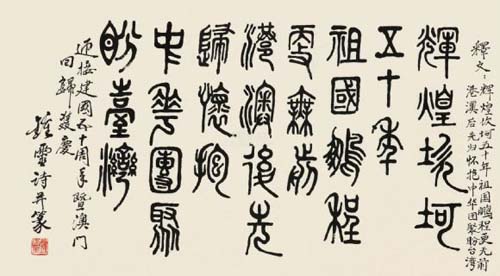 釋文：辉煌坎坷五十年祖国鹏程更无前
港澳后先归怀抱中华团聚盼台湾
輝煌坎坷
五十年
祖國鵬程
更無前
港澳後先
歸懷抱
中華團聚
盼臺灣
迎接建國五十周年暨澳门
回歸雙慶
鍾靈诗并篆